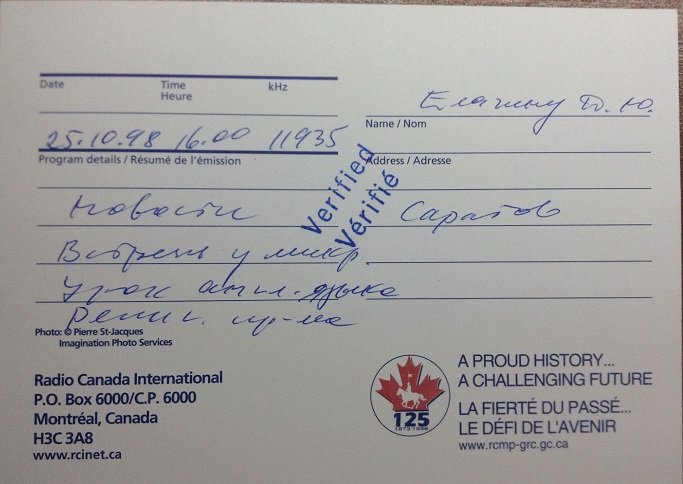 Date Time kHz
Heure
25.10.98 16.00 11935
Program details / Résumé de l'émission
Новости
Встреча у микр.
Урок англ. языка
Религ. пр-ма
Photo: © Pierre St-Jacques
Imagination Photo Services
Radio Canada International
P.O. Box 6000/C.P. 6000
Montréal, Canada
H3C 3A8
www.rcinet.ca
Verified
Vérifié
Д. Ю.
Name / Nom
Address / Adresse
Саратов
125
1873-1998
A PROUD HISTORY...
A CHALLENGING FUTURE
LA FIERTÉ DU PASSÉ...
LE DÉFI DE L'AVENIR
www.rcmp-grc.gc.ca